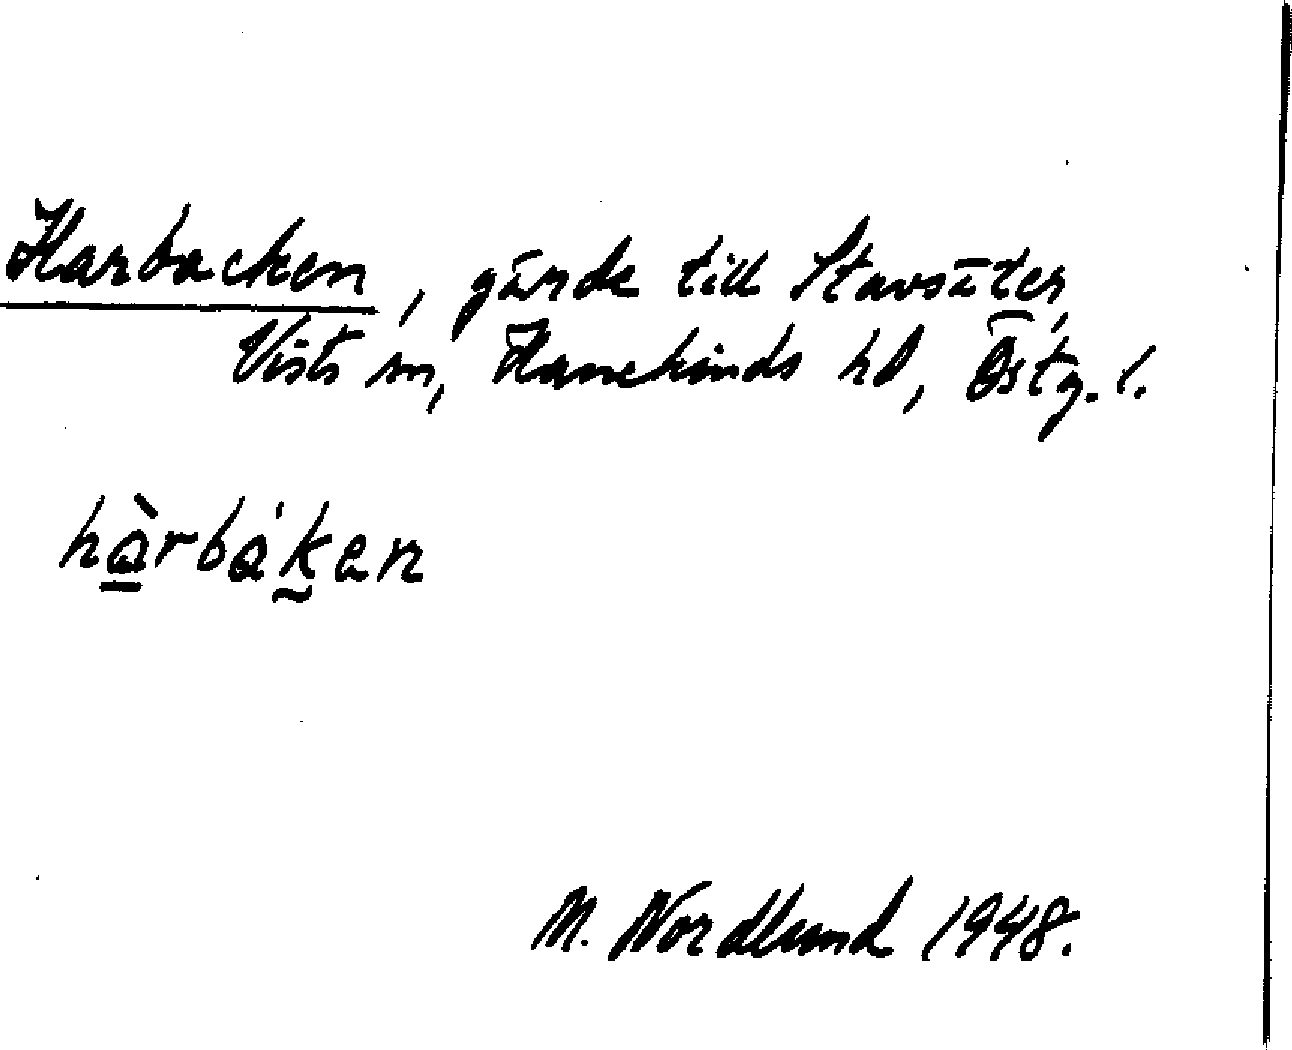 Harbacken, gärde till Stavsäter,
Vists sn, Hanekinds hd, Östg. l.
hàrbák̰en
M. Nordlund 1948.